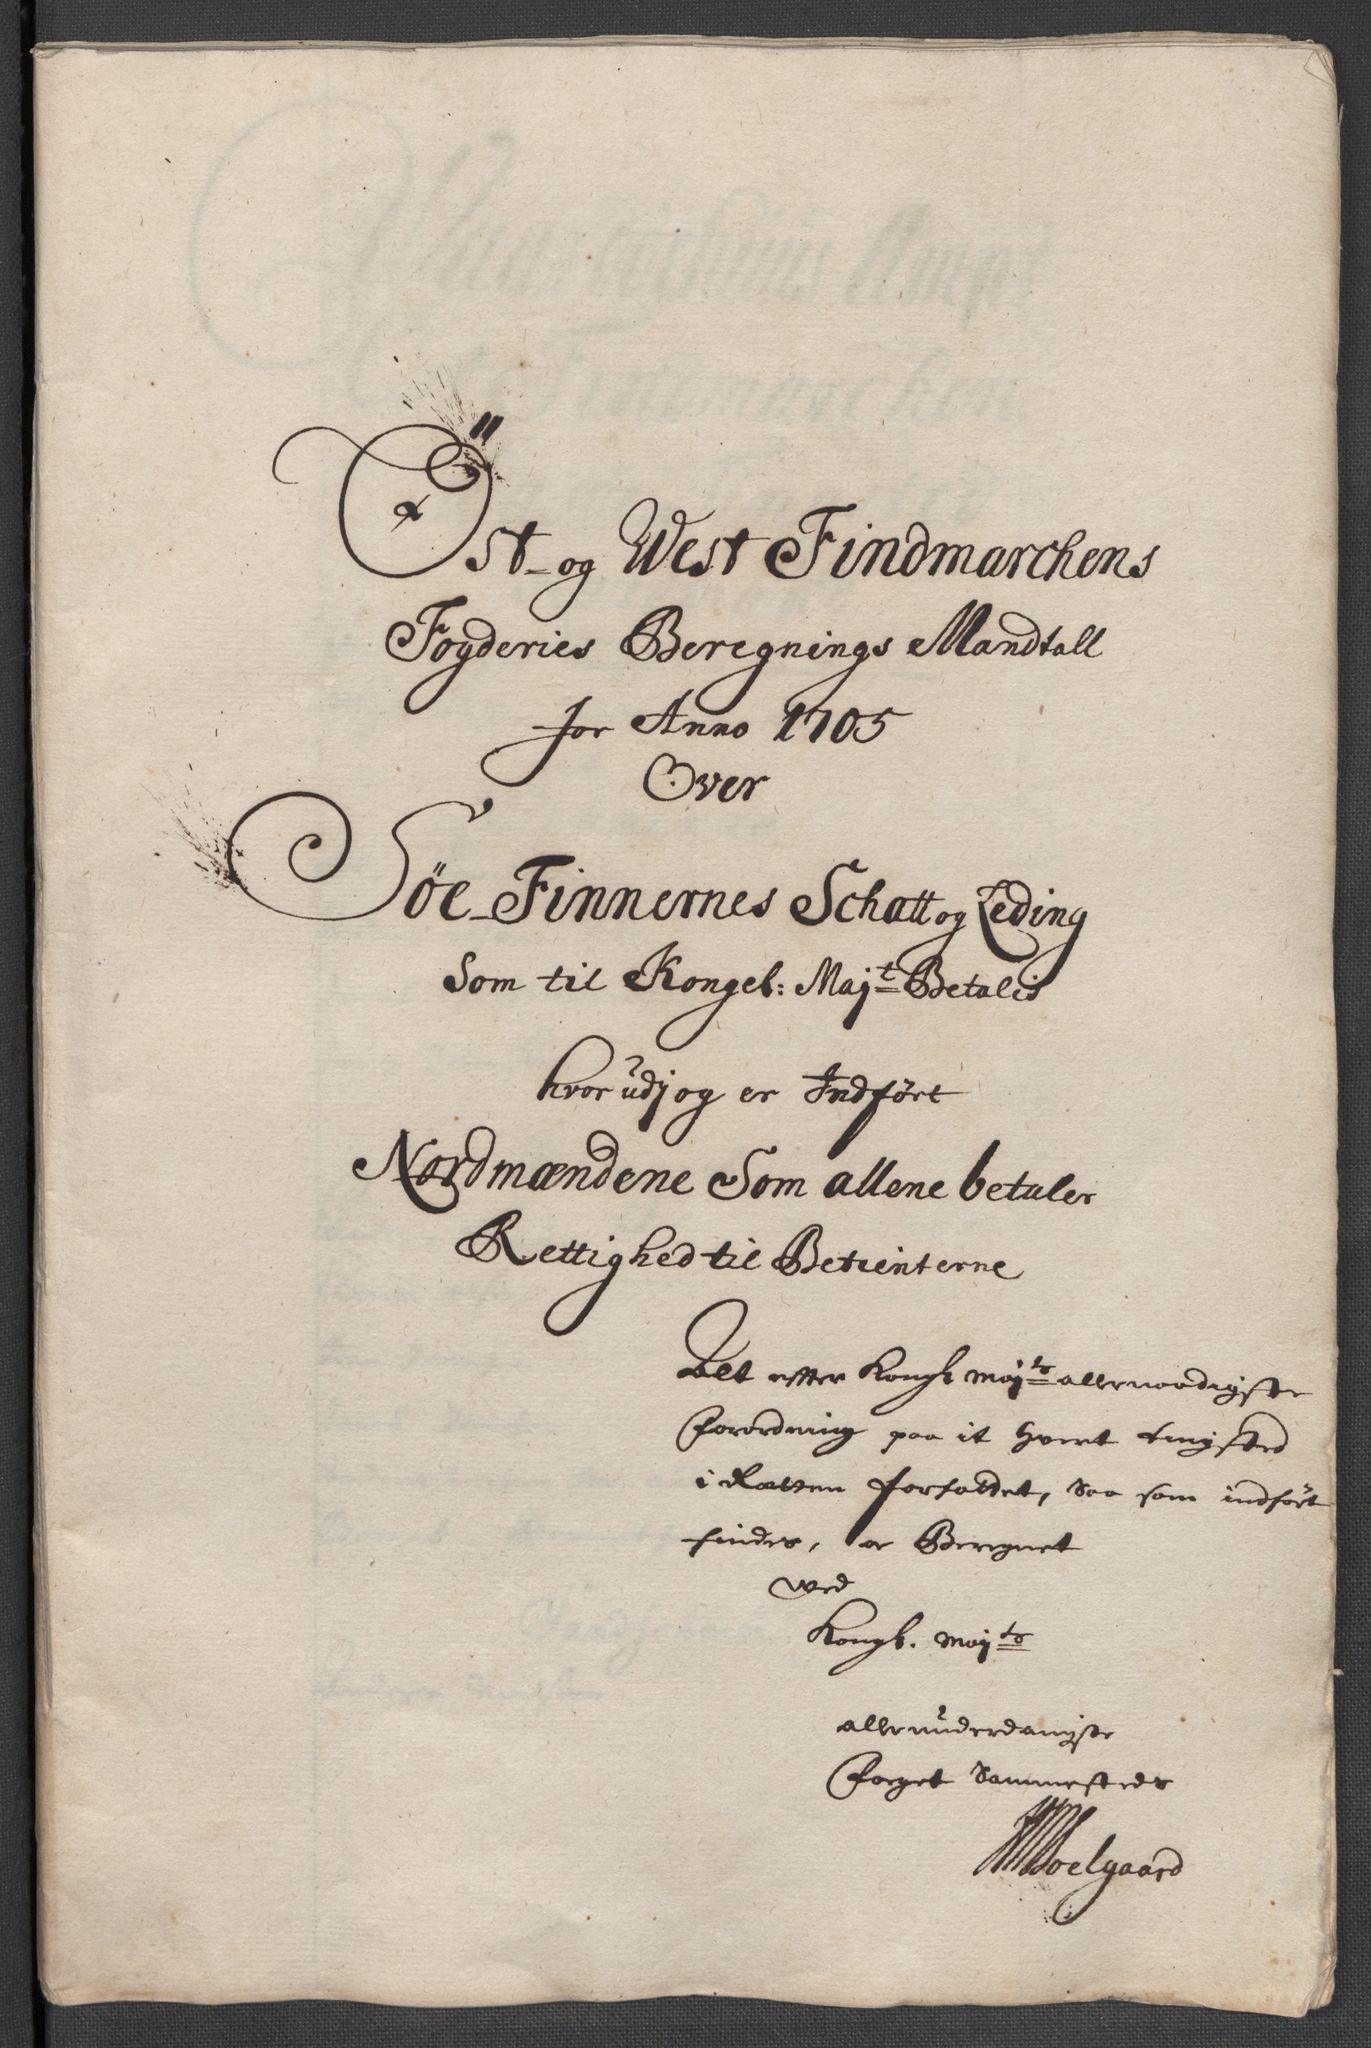 Öst- og West Findmarchens
Fogderies Beregnings Mandtall
for Anno 1705
Over
Söe-Finnernes Schatt og Leding
Som til Kongel: Majt Betales
hvor udj og er Indført
Nordmændene Som allene betaler
Rettighed til Betienterne
Alt efter Kongl Mayts allernaadigste
Forordning paa it hvert tingsted
i Retten forfattet, saa som indført
findes, er Beregnet
Ved
Kongl. Mayts
allerunderdanigste
Foeget Sammesteds